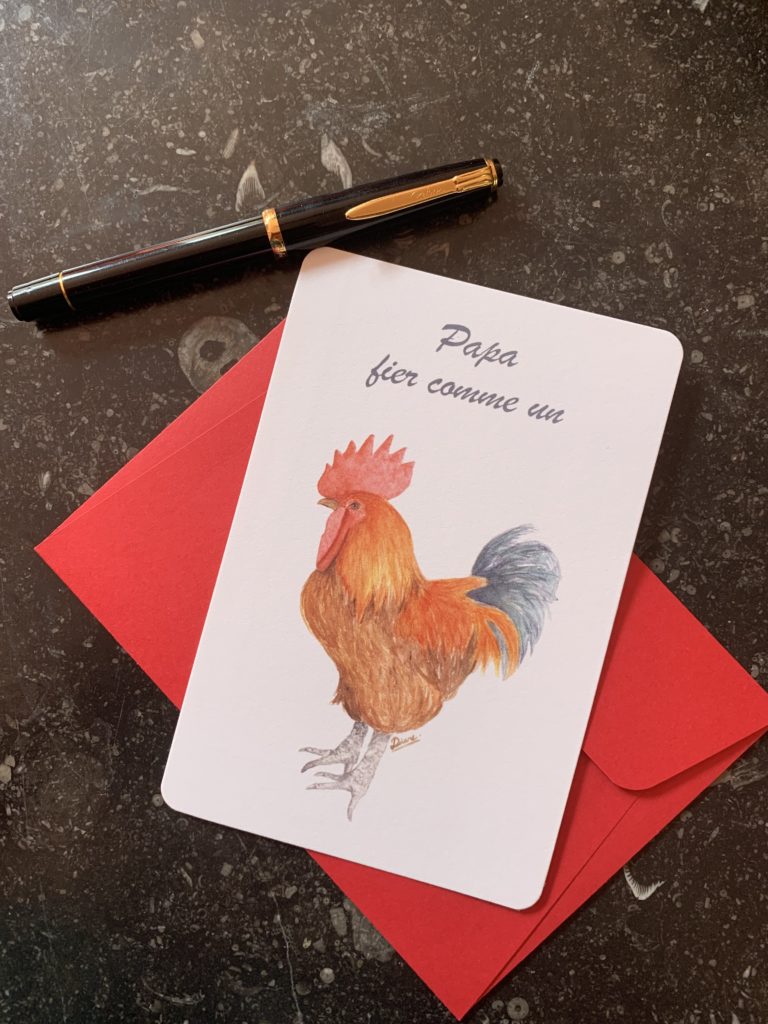 Papa
fier comme un